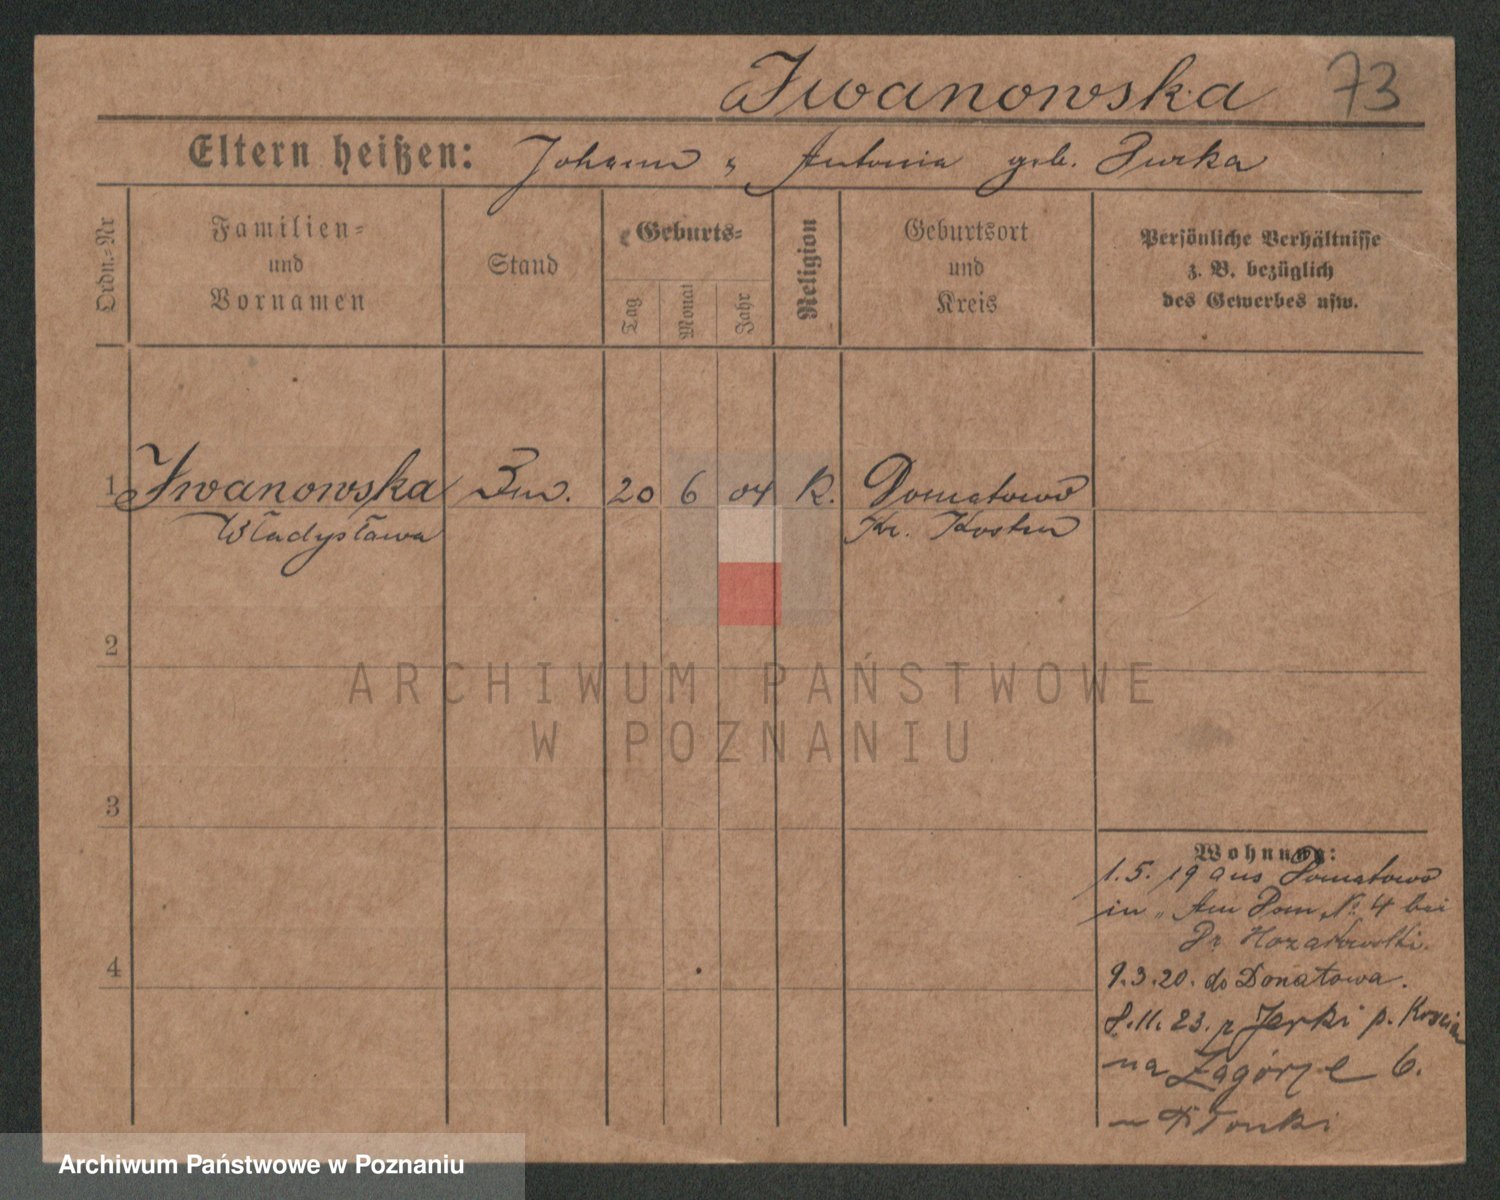 Iwanowska 73
Eltern heißen: Johann u Antonia geb. Purka
Ordn.-Nr
Familien-
und
Vornamen
Stand
Geburts-
Tag
Monat
Jahr
Religion
Geburtsort
und
Kreis
Persönliche Verhältnisse
z. B. bezüglich
des Gewerbes usw.
1 Iwanowska 20 6 04 K. Donatowo
Władysława Kr. Kosten
2
3
4
Wohnung:
1.5.19 aus Donatowo
in Am Dom No 4 bei
9.3.20. do Donatowa.
8.11.23. z Jerki p. Kościan
na Zagórze 6.
ARCHIWUM PAŃSTWOWE
W POZNANIU
Archiwum Państwowe w Poznaniu